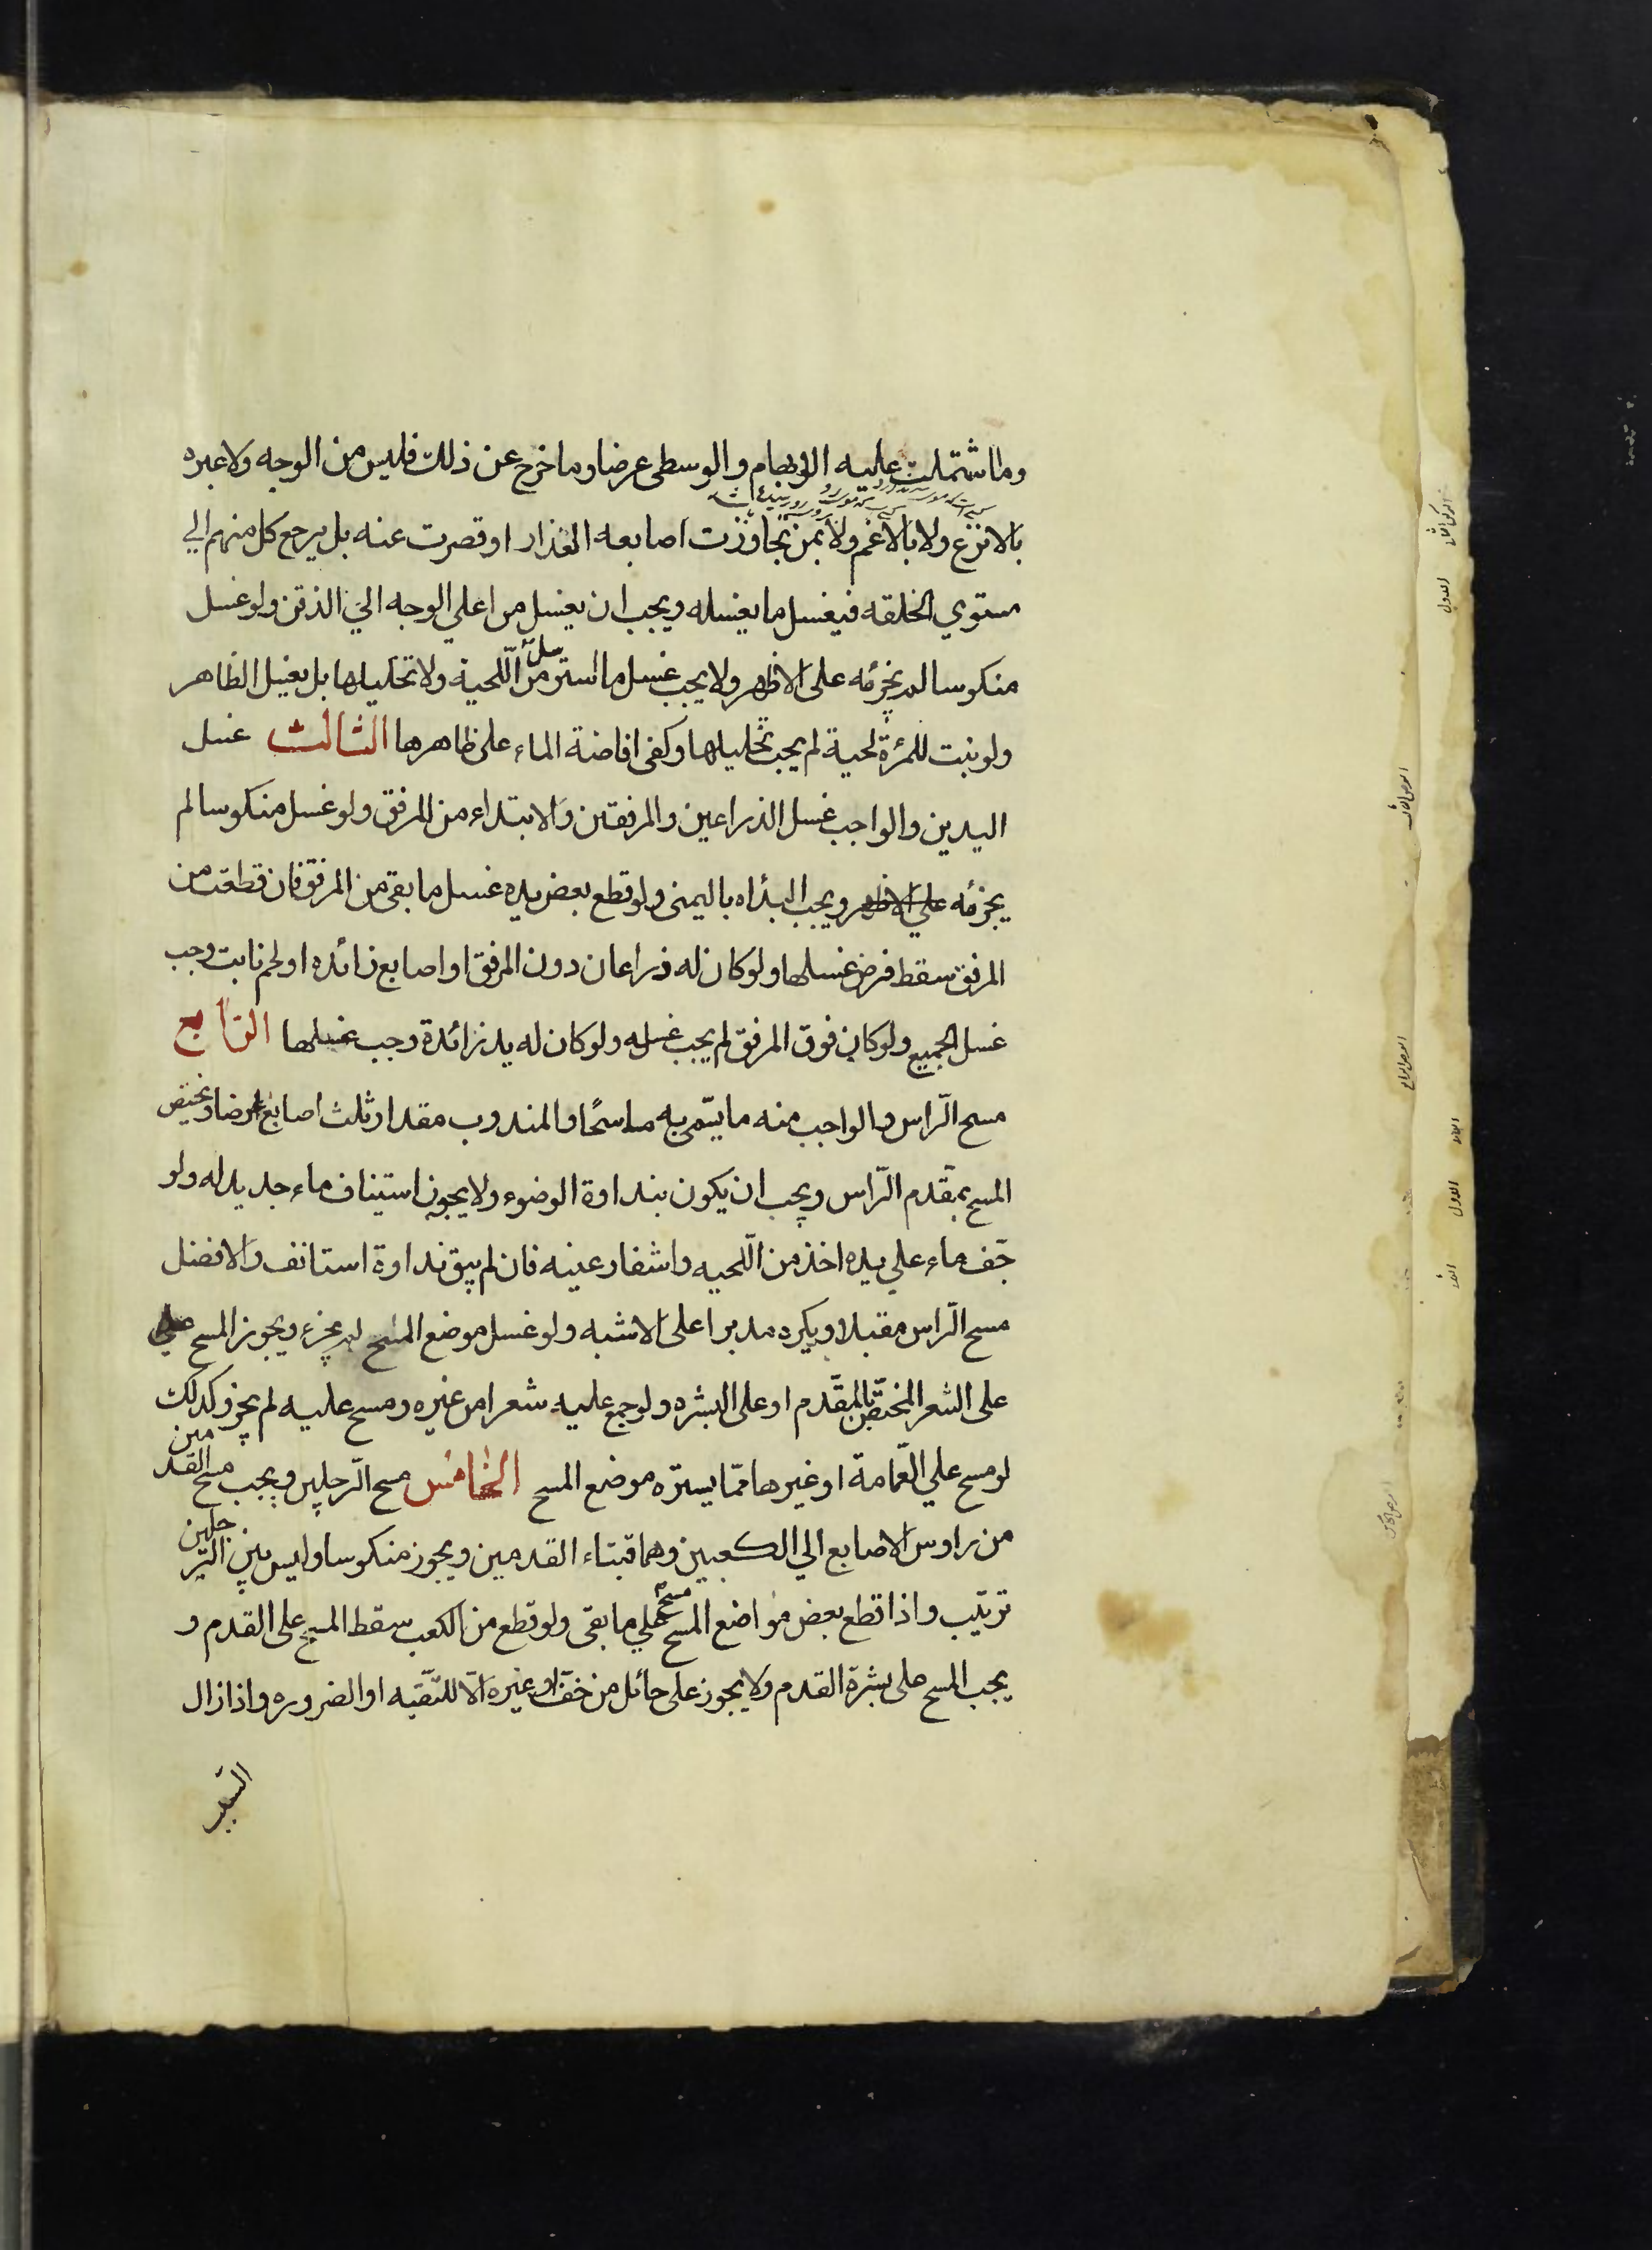 وما اشتملت عليه الابهام والوسطى عرضا وما خرج عن ذلك فليس من الوجه ولا عبره
بالانزع ولا بالاغم ولا بمن تجاوزت اصابعه العذار او قصرت عنه بل يرجع كل منهم الي
مستوي الخلقه فيغسل ما يغسله ويجب ان يغسل من اعلي الوجه الي الذقن ولو غسل
منكوسا لم يجزئه على الاظهر ولا يجب غسل ما استرسل من اللحية ولا تخليلها بل يغسل الظاهر
ولو نبت للمرئة لحية لم يجب تخليلها وكفى افاضة الماء على ظاهرها الثالث غسل
اليدين والواجب غسل الذراعين والمرفقين والابتداء من المرفق ولو غسل منكوسا لم
يجزئه علي الاظهر ويجب البدأه باليمنى ولو قطع بعض يده غسل ما بقي من المرفق فان قطعت من
المرفق سقط فرض غسلها ولو كان له ذراعان دون المرفق او اصابع زائده او لحم نابت وجب
غسل الجميع ولو كان فوق المرفق لم يجب غسله ولو كان له يد زائدة وجب غسلها الرّابع
مسح الرّاس والواجب منه ما يسّمى به ماسحًا والمندوب مقدار ثلث اصابع عرضا ويختص
المسح بمقّدم الرّاس ويجب ان يكون بنداوة الوضوء ولا يجوز استيناف ماء جديد له ولو
جّف ماء علي يده اخذ من اللّحيه واشفار عينه فان لم يبق نداوة استانف والافضل
مسح الرّاس مقبلا ويكره مدبرا على الاشبه ولو غسل موضع المسح لم يجزء ويجوز المسح علي
على الشعر المختّص بالمقّدم او على البشره ولو جمع عليه شعرا من غيره ومسح عليه لم يجز وكذلك
لو مسح علي العّمامة او غيرها ممّا يستره موضع المسح الخامس مسح الّرجلين ويجب مسح القدمين
من راوس الاصابع الي الكعبين وهما قبتاء القدمين ويجوز منكوسا وليس بين الرّجلين
ترتيب واذا قطع بعض مواضع المسح مسح علي ما بقى ولو قطع من الكعب سقط المسح على القدم و
يجب المسح على بشرة القدم ولا يجوز على حائل من خفّ او غيره الّا للتّقيه او الضروره واذا زال
السّبب